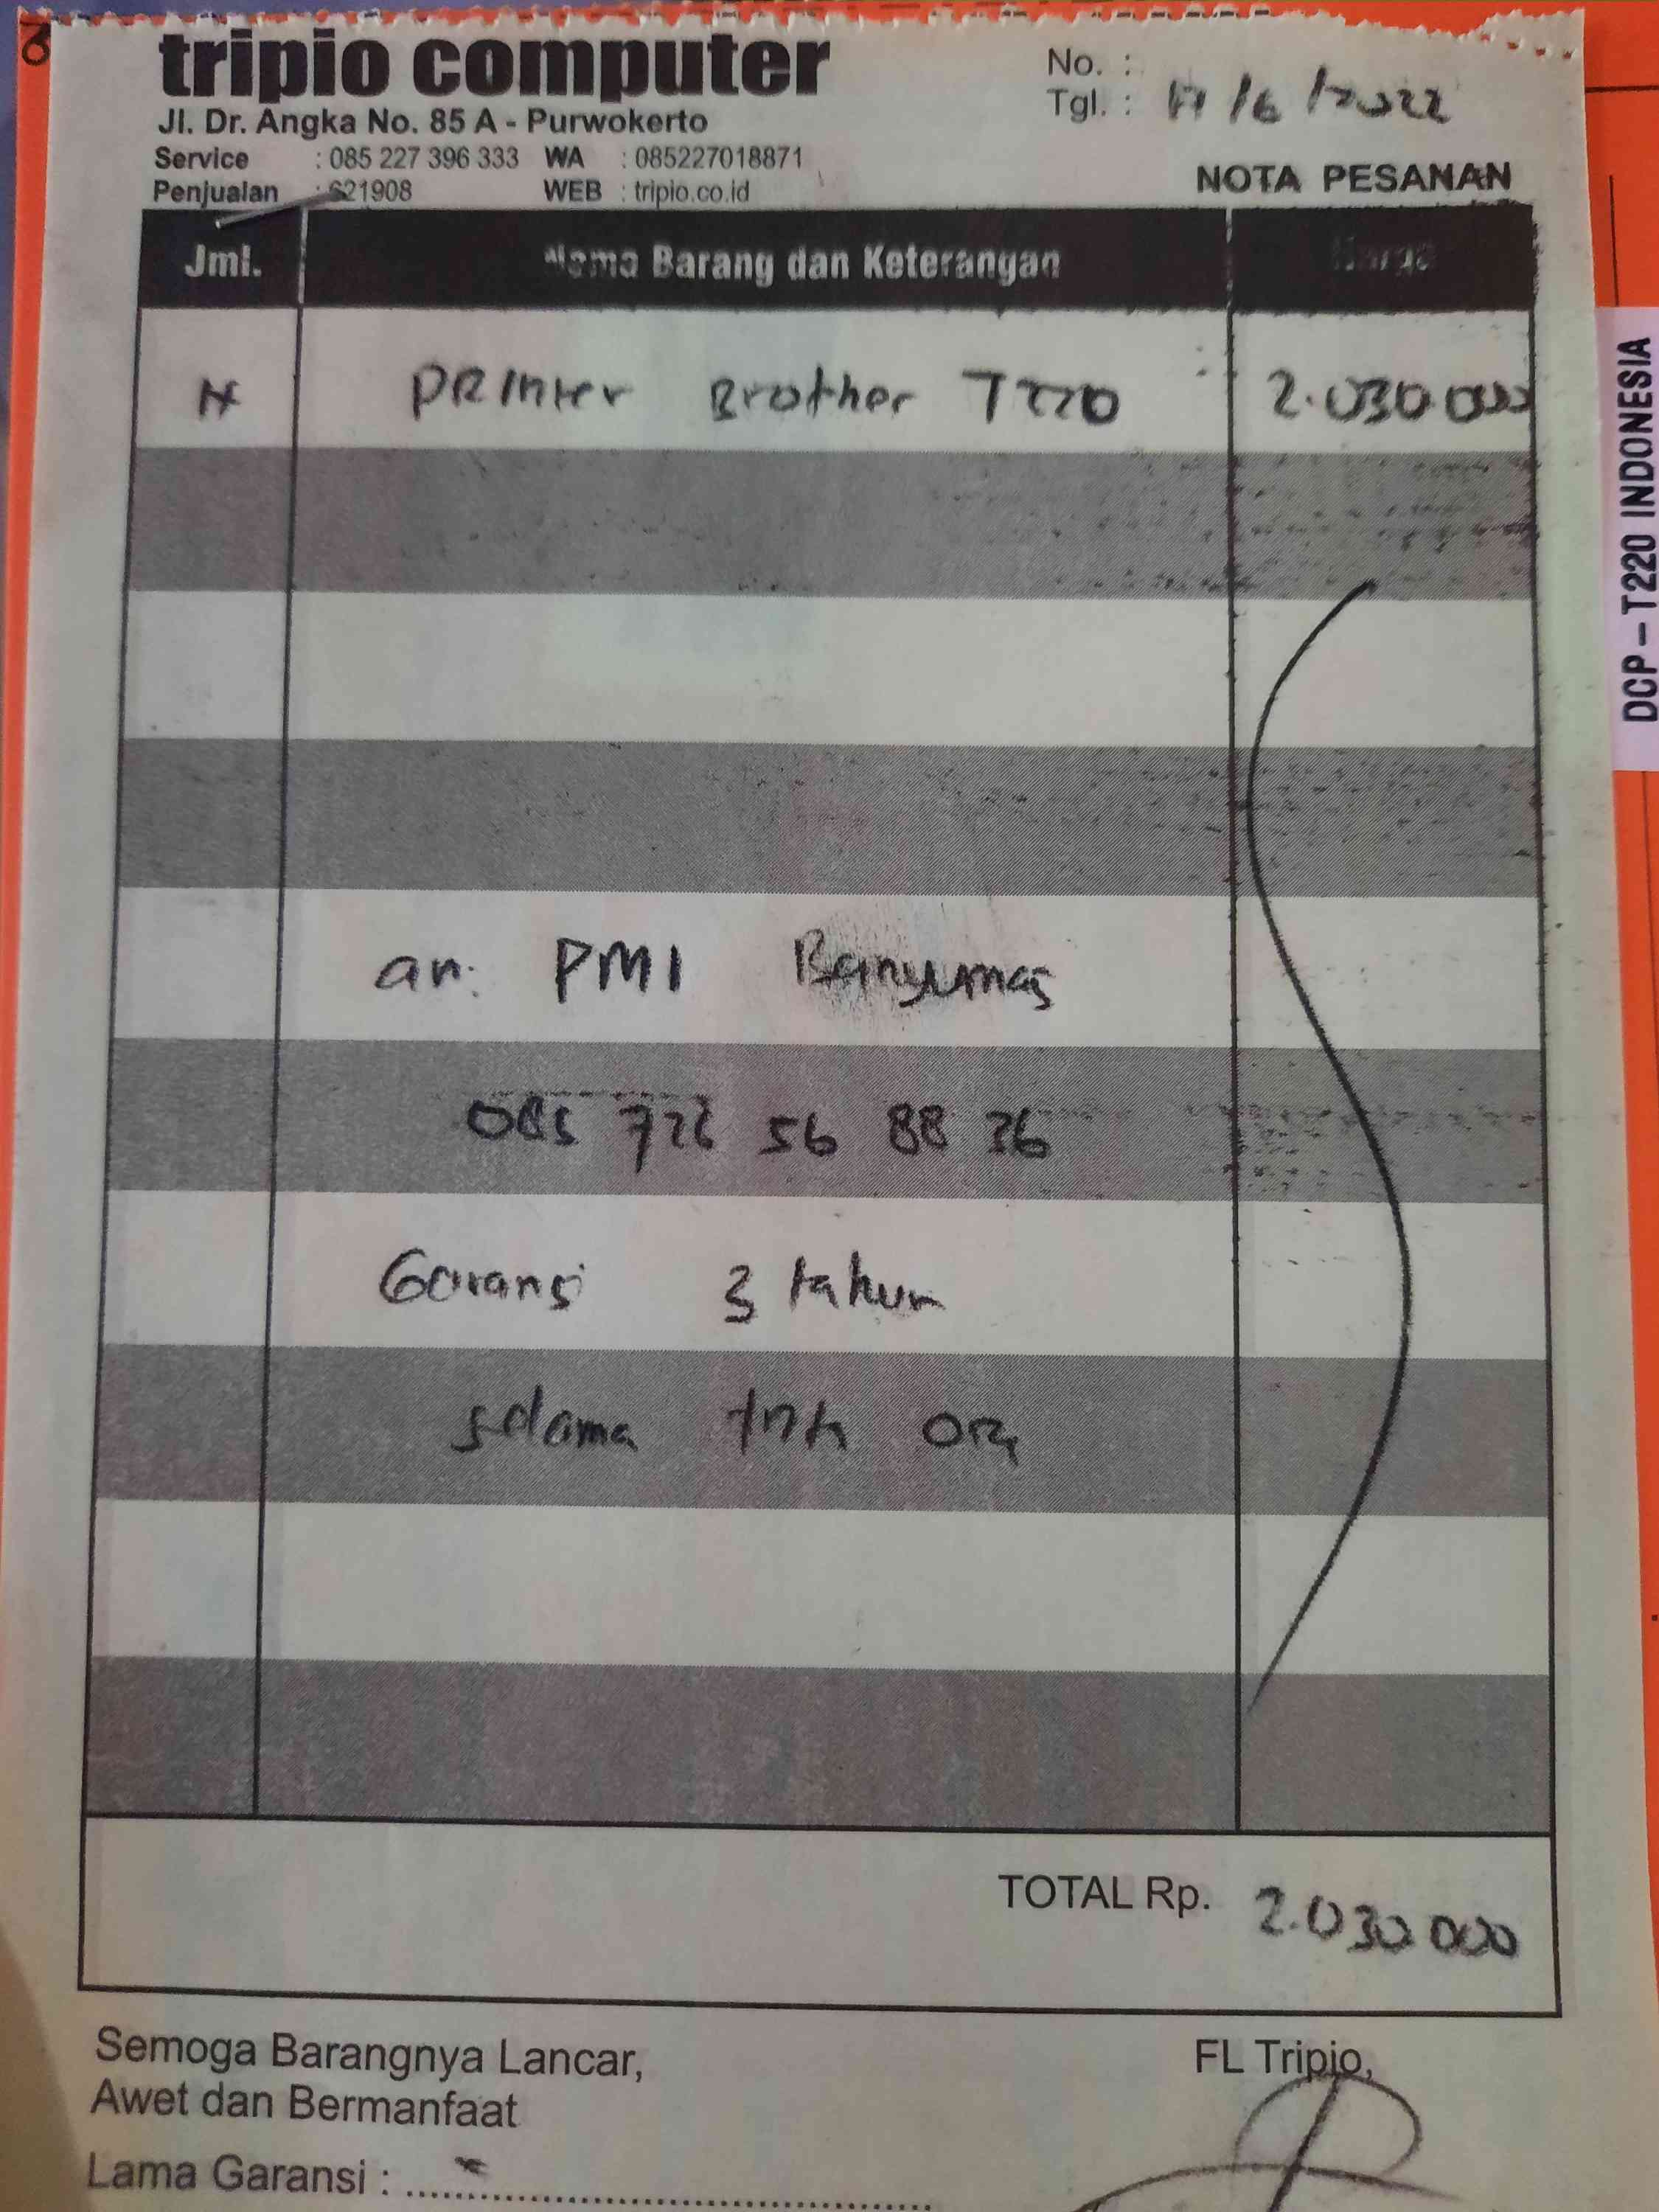 tripio computer
Jl. Dr. Angka No. 85 A - Purwokerto
Service : 085 227 396 333 WA : 085227018871
Penjualan : 621908 WEB : tripio.co.id
No. :
Tgl. : /6/2022
NOTA PESANAN
Jml. Nama Barang dan Keterangan Harga
Printer Brother T220 2.030.000
an. PMI Banyumas
56 88 36
Garansi 3 tahun
selama ori
TOTAL Rp. 2.030.000
Semoga Barangnya Lancar,
Awet dan Bermanfaat
Lama Garansi :
FL Tripio,
DCP - T220 INDONESIA